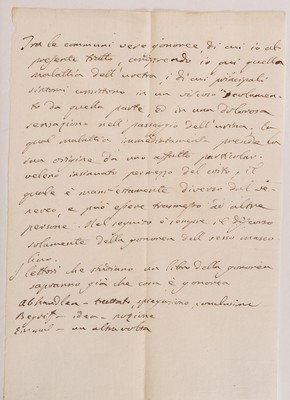 Tra le comuni vere gonoree, di cui io al
presente tratto, comprendo io pur quella
malattia dell'uretra, i di cui principali
sintomi consistono in un viscoso scolamento
to da quella parte, ed in una dolorosa
sensazione nell passaggio dell'urina, la
qual malattia immediatamente prende la
sua origine da uno affatto particolar
veleno insinuato per mezzo del coito, il
quale è manifestamente diverso dal ve-
nereo, e può essere trasmesso ad altre
persone. Nel seguito è sempre il discorso
solamente della gonorea dell sesso masco-
lino.
I lettori che studiano un libro della gonorea
sapranno già che cosa è gonorea
Abhandlen - trattato, spiegazione, conclusione
Begriff - idea - nozione
Einmal - un altra volta